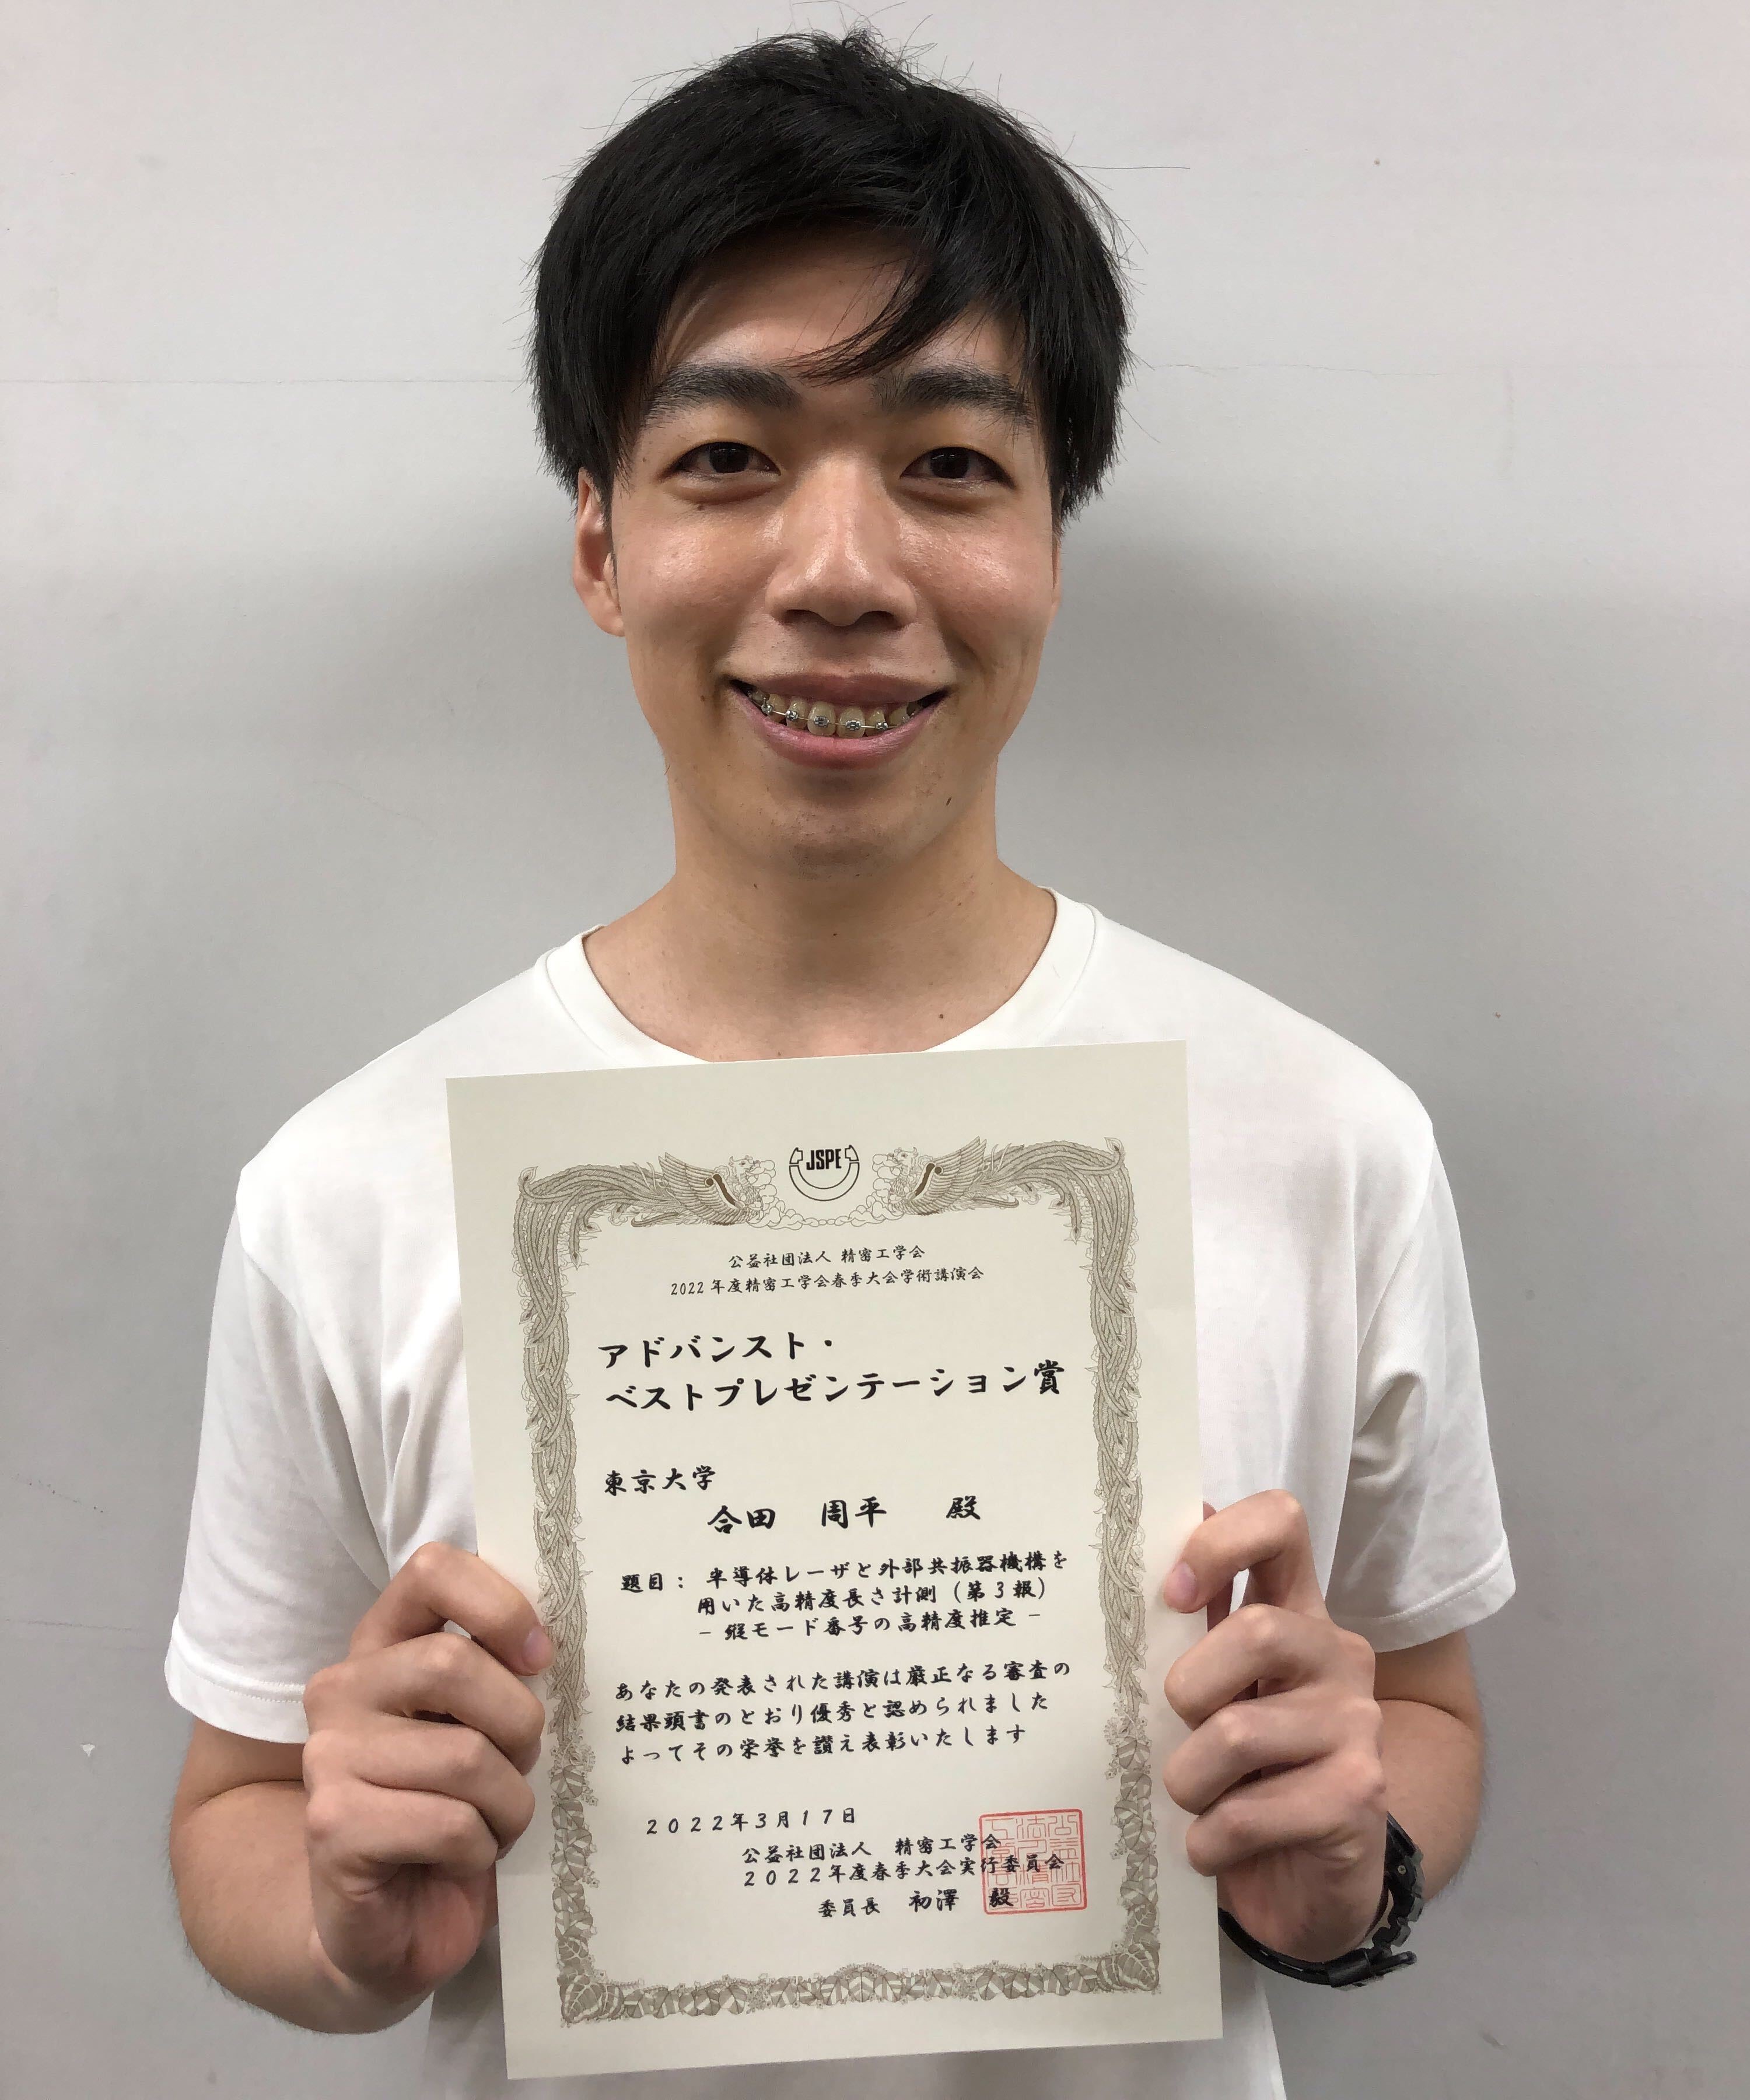 JSPE
公益社団法人 精密工学会
2022年度精密工学会春季大会学術講演会
アドバンスト・
ベストプレゼンテーション賞
東京大学
合田 周平 殿
題目： 半導体レーザと外部共振器機構を
用いた高精度長さ計測（第3報）
－ 縦モード番号の高精度推定 －
あなたの発表された講演は厳正なる審査の
結果頭書のとおり優秀と認められました
よってその栄誉を讃え表彰いたします
２０２２年３月１７日
公益社団法人 精密工学会
２０２２年度春季大会実行委員会
委員長 初澤 毅